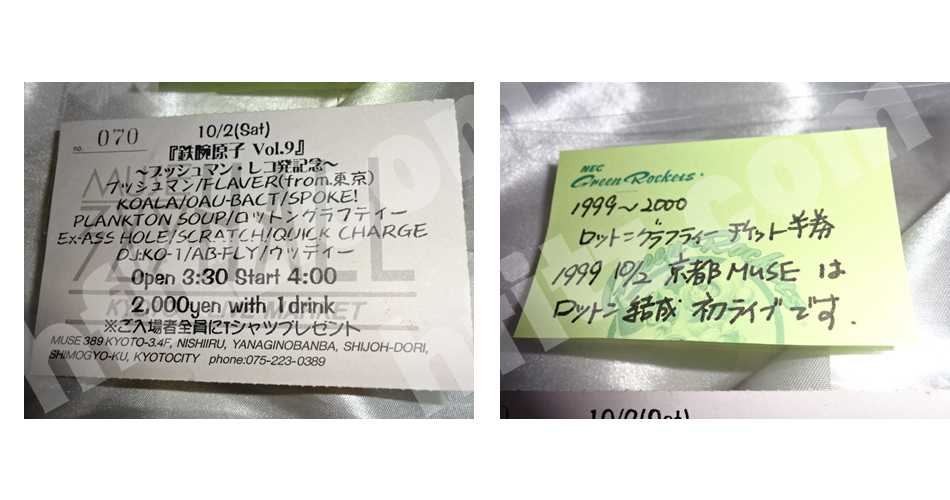 no. 070
10/2(Sat)
『鉄腕原子 Vol.9』
~ブッシュマン・レコ発記念~
ブッシュマン/FLAVER(from.東京)
KOALA/OAU-BACT/SPOKE!
PLANKTON SOUP/ロットングラフティー
Ex-ASS HOLE/SCRATCH/QUICK CHARGE
DJ:KO-1/AB-FLY/ウッディー
Open 3:30 Start 4:00
2,000yen with 1drink
※ご入場者全員にTシャツプレゼント
MUSE 389 KYOTO-3.4F, NISHIIRU, YANAGINOBANBA, SHIJOH-DORI,
SHIMOGYO-KU, KYOTOCITY phone:075-223-0389
NEC
Green Rockers.
1999~2000
ロットングラフティー チケット半券
1999 10/2 京都MUSE は
ロットン 結成 初ライブです.
10/2(Sat)